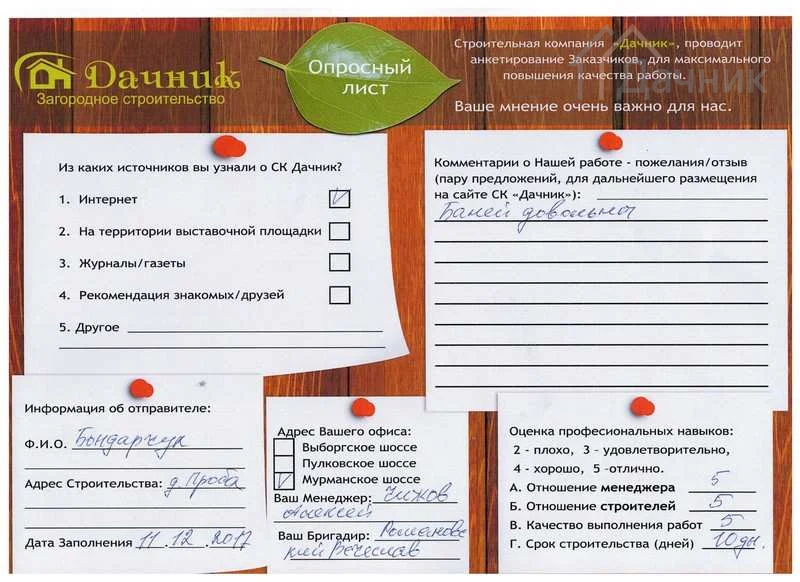 Дачник
Загородное строительство
Опросный
лист
Строительная компания «Дачник», проводит
анкетирование Заказчиков, для максимального
повышения качества работы.
Дачник
Ваше мнение очень важно для нас.
Из каких источников вы узнали о СК Дачник?
1. Интернет
2. На территории выставочной площадки
3. Журналы/газеты
4. Рекомендация знакомых/друзей
5. Другое
Комментарии о Нашей работе - пожелания/отзыв
(пару предложений, для дальнейшего размещения
на сайте СК «Дачник»):
Баней довольны
Информация об отправителе:
Ф.И.О. Бондарчук
Адрес Строительства: д. Проба
Дата Заполнения 11.12.2017
Адрес Вашего офиса:
Выборгское шоссе
Пулковское шоссе
Мурманское шоссе
Ваш Менеджер: Чижов
Алексей
Ваш Бригадир: Романовс
кий Вечеслав
Оценка профессиональных навыков:
2 - плохо, 3 - удовлетворительно,
4 - хорошо, 5 -отлично.
А. Отношение менеджера 5
Б. Отношение строителей 5
В. Качество выполнения работ 5
Г. Срок строительства (дней) 10